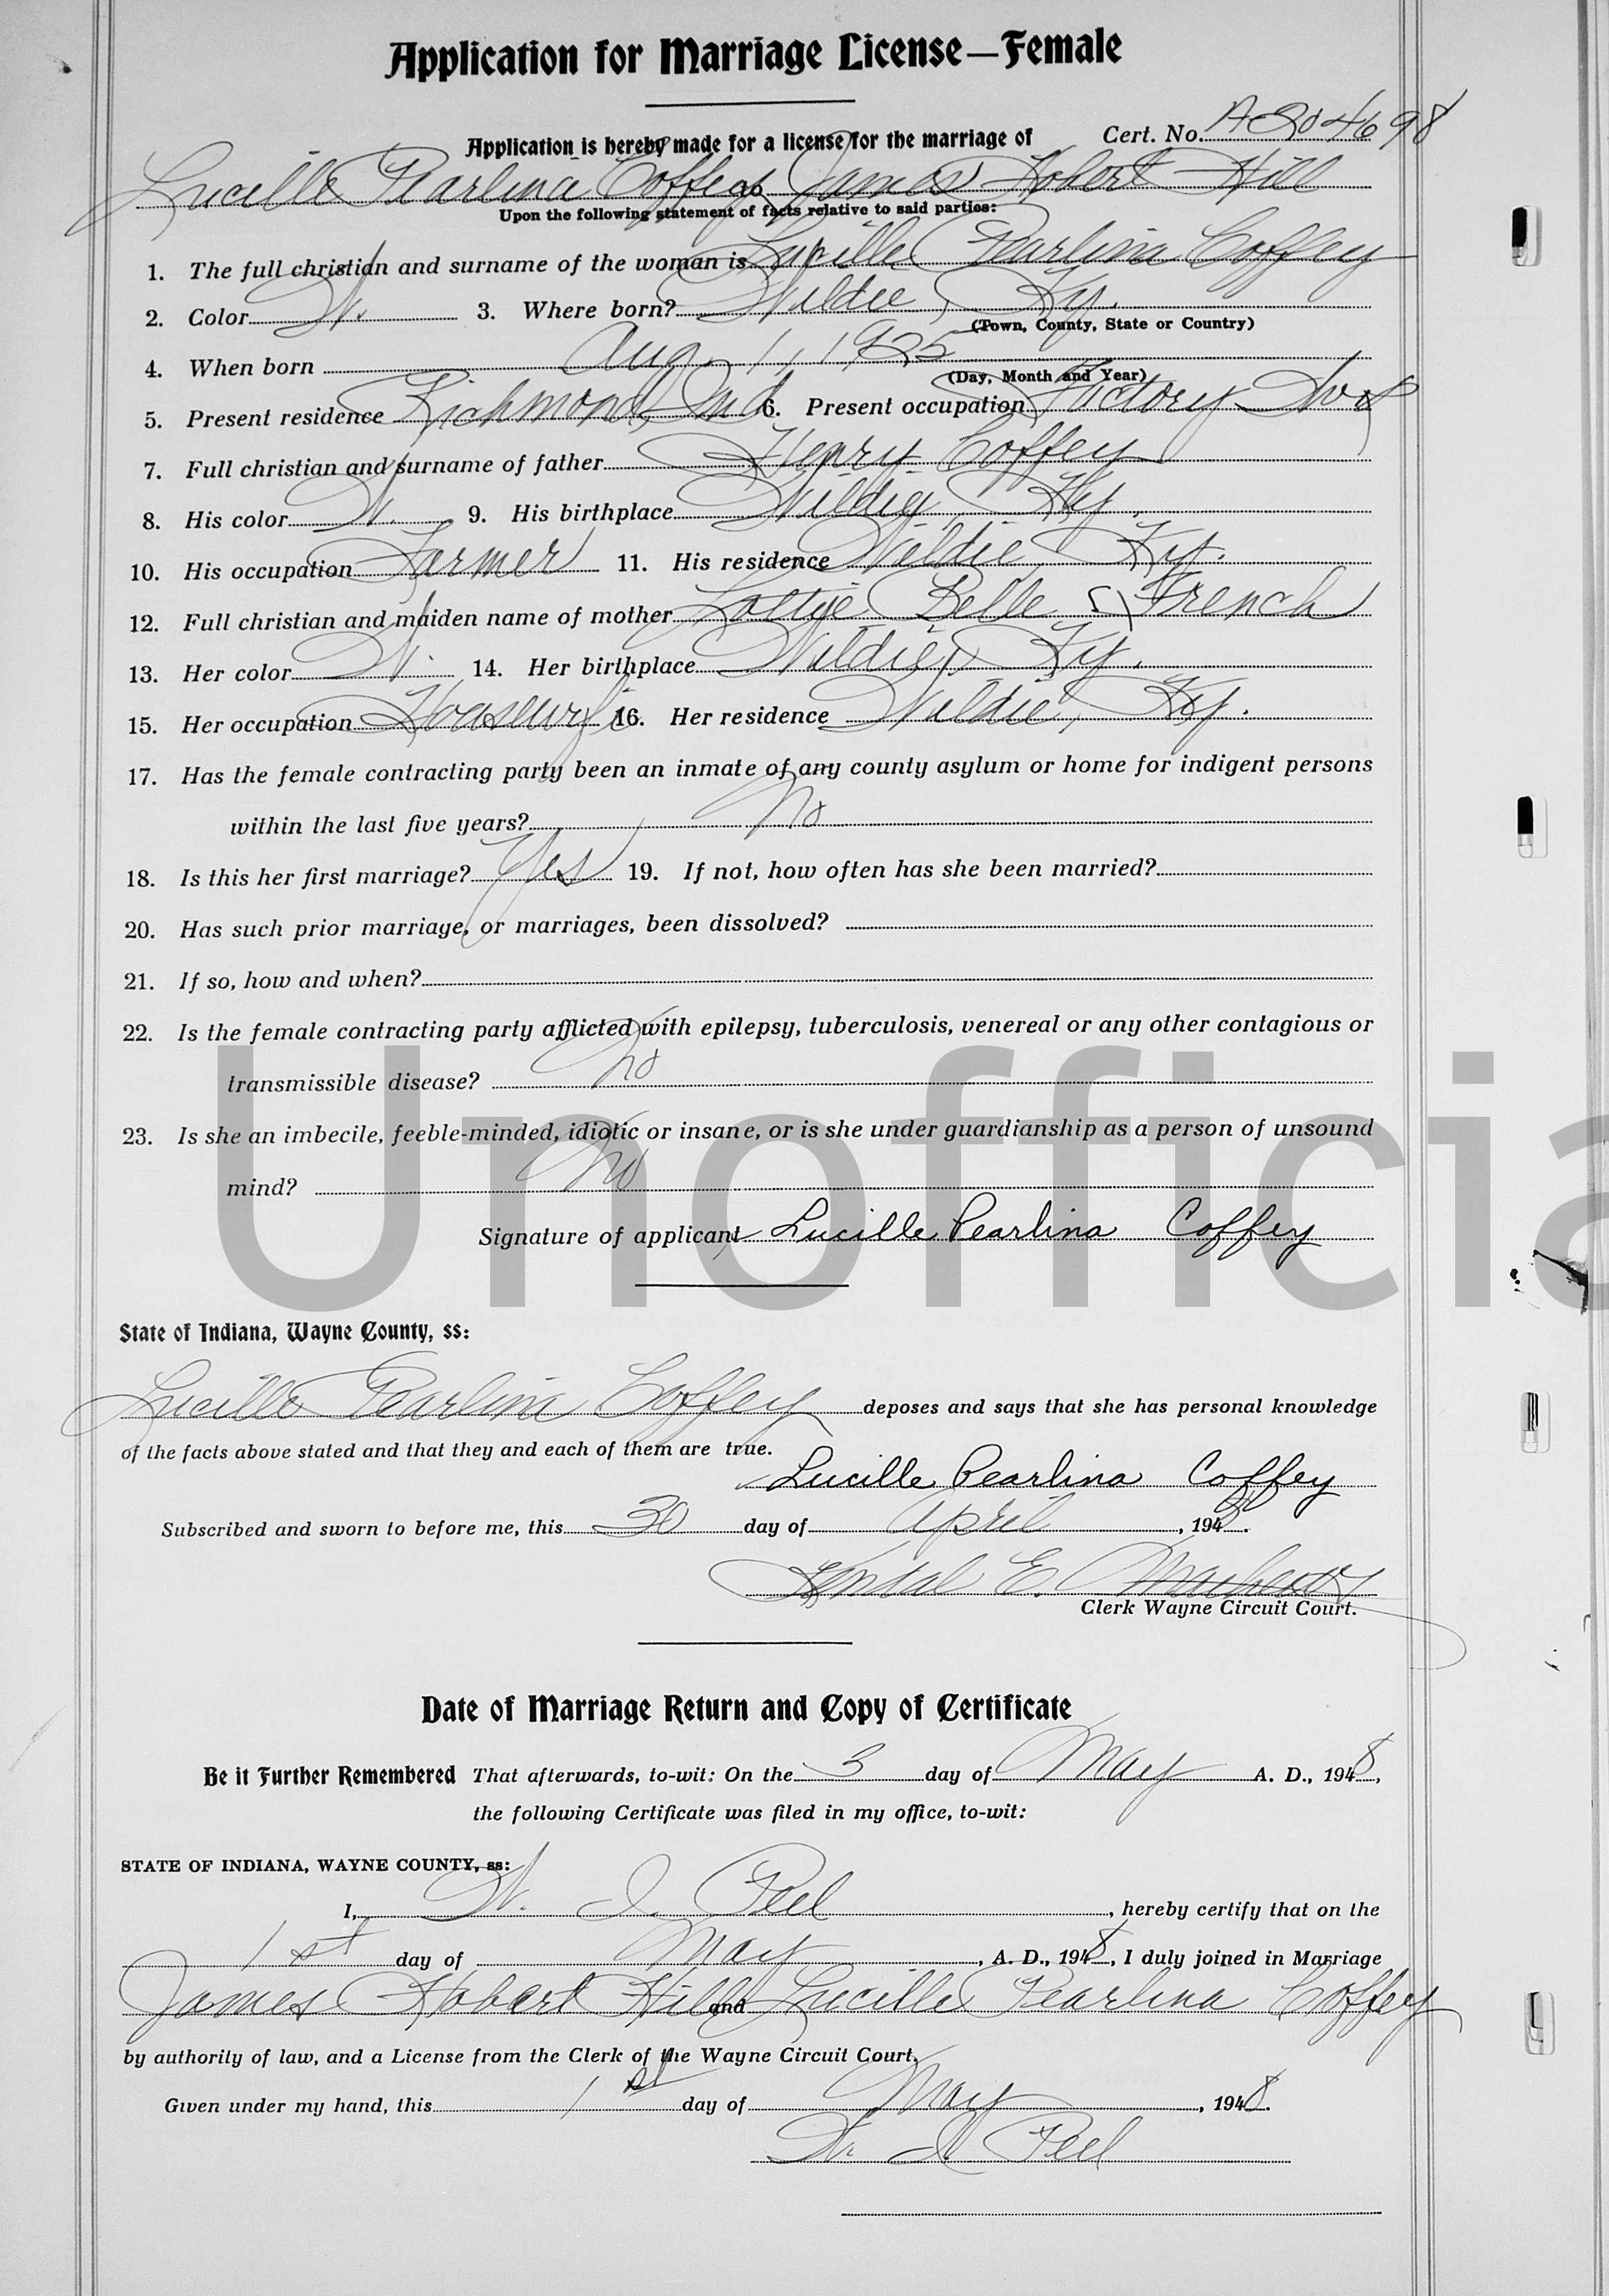 Application for Marriage License—Female
Application is hereby made for a license for the marriage of Cert. No. A204698
Lucille Pearlina Coffey to James Hobert Hill
Upon the following statement of facts relative to said parties:
1. The full christian and surname of the woman is Lucille Pearlina Coffey
2. Color W. 3. Where born? Wildie, Ky.
(Town, County, State or Country)
4. When born Aug. 1, 1925
(Day, Month and Year)
5. Present residence Richmond, Ind 6. Present occupation Factory
7. Full christian and surname of father Henry Coffey
8. His color W. 9. His birthplace Wildie, Ky.
10. His occupation Farmer 11. His residence Wildie, Ky.
12. Full christian and maiden name of mother Belle French
13. Her color W. 14. Her birthplace Wildie, Ky.
15. Her occupation Housewife 16. Her residence Wildie, Ky.
17. Has the female contracting party been an inmate of any county asylum or home for indigent persons
within the last five years? No
18. Is this her first marriage? Yes 19. If not, how often has she been married?
20. Has such prior marriage, or marriages, been dissolved?
21. If so, how and when?
22. Is the female contracting party afflicted with epilepsy, tuberculosis, venereal or any other contagious or
transmissible disease? No
23. Is she an imbecile, feeble-minded, idiotic or insane, or is she under guardianship as a person of unsound
mind? No
Unofficia
Signature of applicant Lucille Pearlina Coffey
State of Indiana, Wayne County, ss:
Lucille Pearlina Coffey deposes and says that she has personal knowledge
of the facts above stated and that they and each of them are true.
Lucille Pearlina Coffey
Subscribed and sworn to before me, this 30 day of April, 1948.
E.
Clerk Wayne Circuit Court.
Date of Marriage Return and Copy of Certificate
Be it Further Remembered That afterwards, to-wit: On the 3 day of May A. D., 1948,
the following Certificate was filed in my office, to-wit:
STATE OF INDIANA, WAYNE COUNTY, ss:
I, W. I. Peel, hereby certify that on the
1st day of May, A. D., 1948, I duly joined in Marriage
James Hobert Hill and Lucille Pearlina Coffey
by authority of law, and a License from the Clerk of the Wayne Circuit Court.
Given under my hand, this 1st day of May, 1948.
W. I. Peel